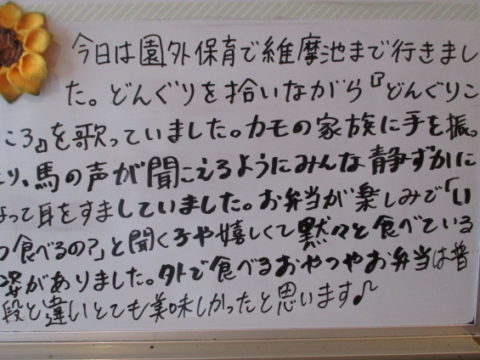 今日は園外保育で維摩池まで行きまし
た。どんぐりを拾いながら『どんぐりこ
ころ』を歌っていました。カモの家族に手を振
り、馬の声が聞こえるようにみんな静ずかに
なって耳をすましていました。お弁当が楽しみで「い
つ食べるの?」と聞く子や嬉しくて黙々と食べている
姿がありました。外で食べるおやつやお弁当は普
段と違いとても美味しかったと思います♪